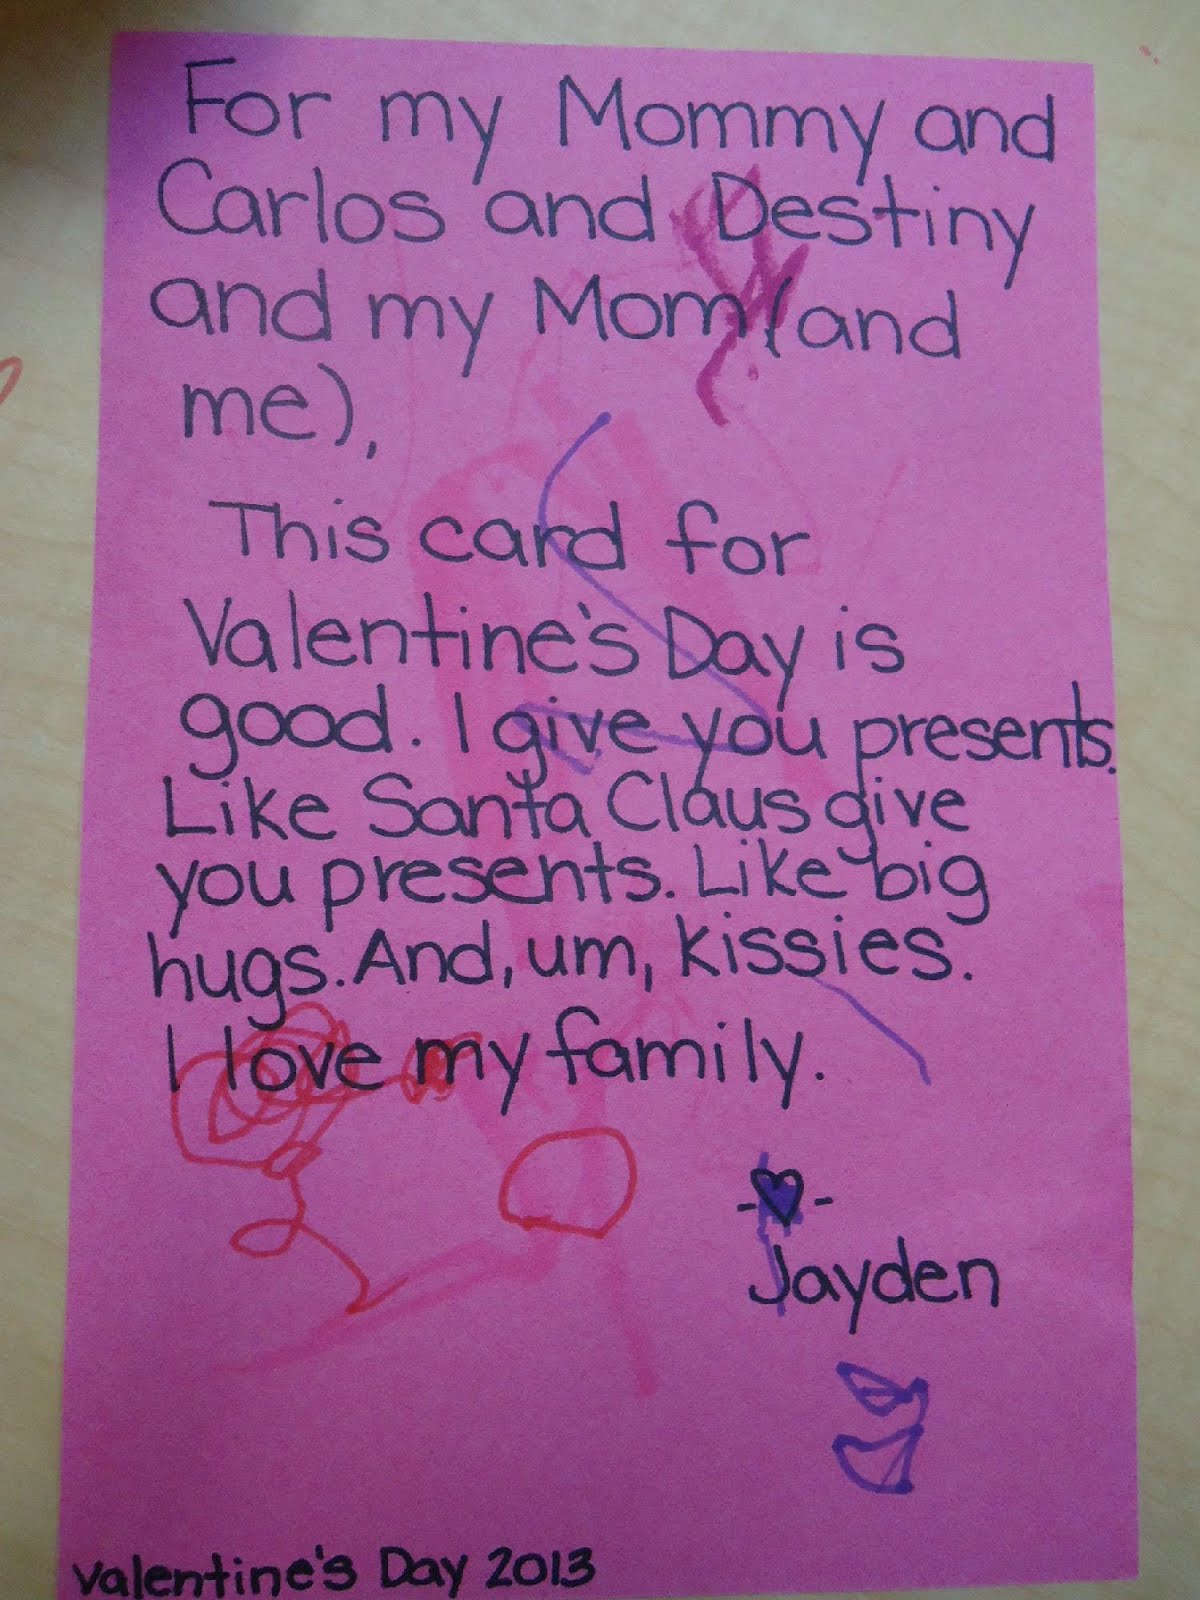 For my Mommy and
Carlos and Destiny
and my Mom (and
me),
This card for
Valentine's Day is
good. I give you presents.
Like Santa Claus give
you presents. Like big
hugs. And, um, kissies.
I love my family.
-♥-
Jayden
Valentine's Day 2013